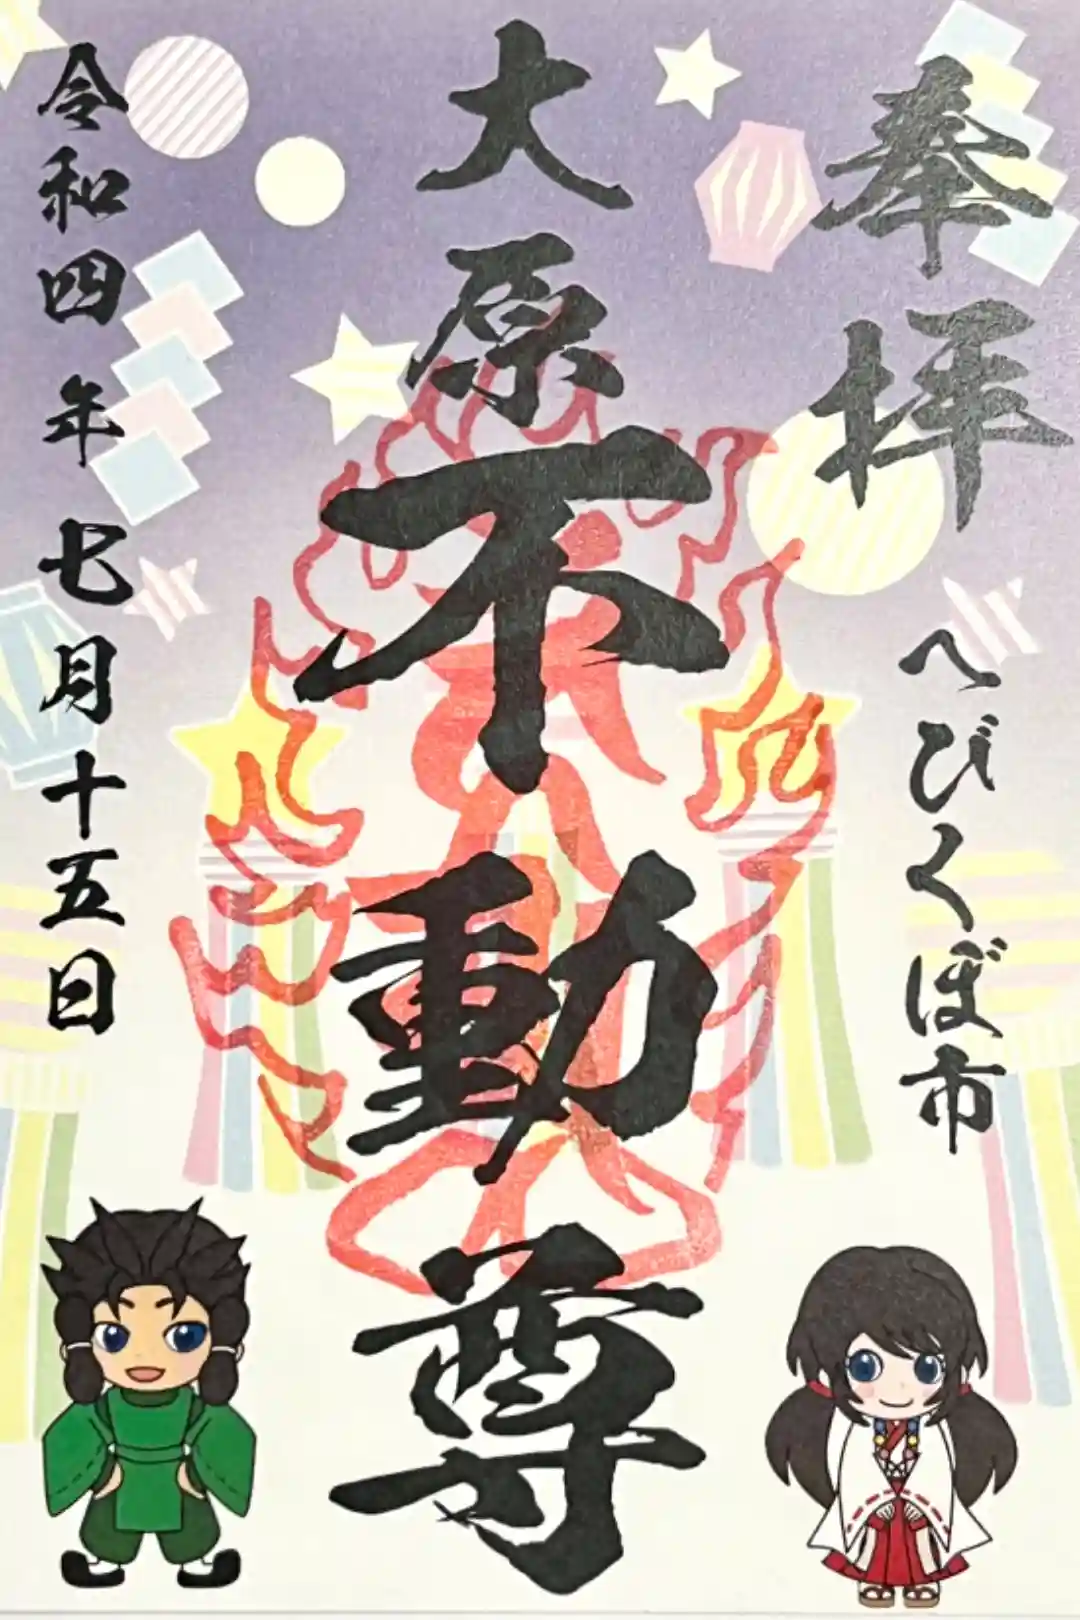 奉拝
へびくぼ市
大原不動尊
令和四年七月十五日